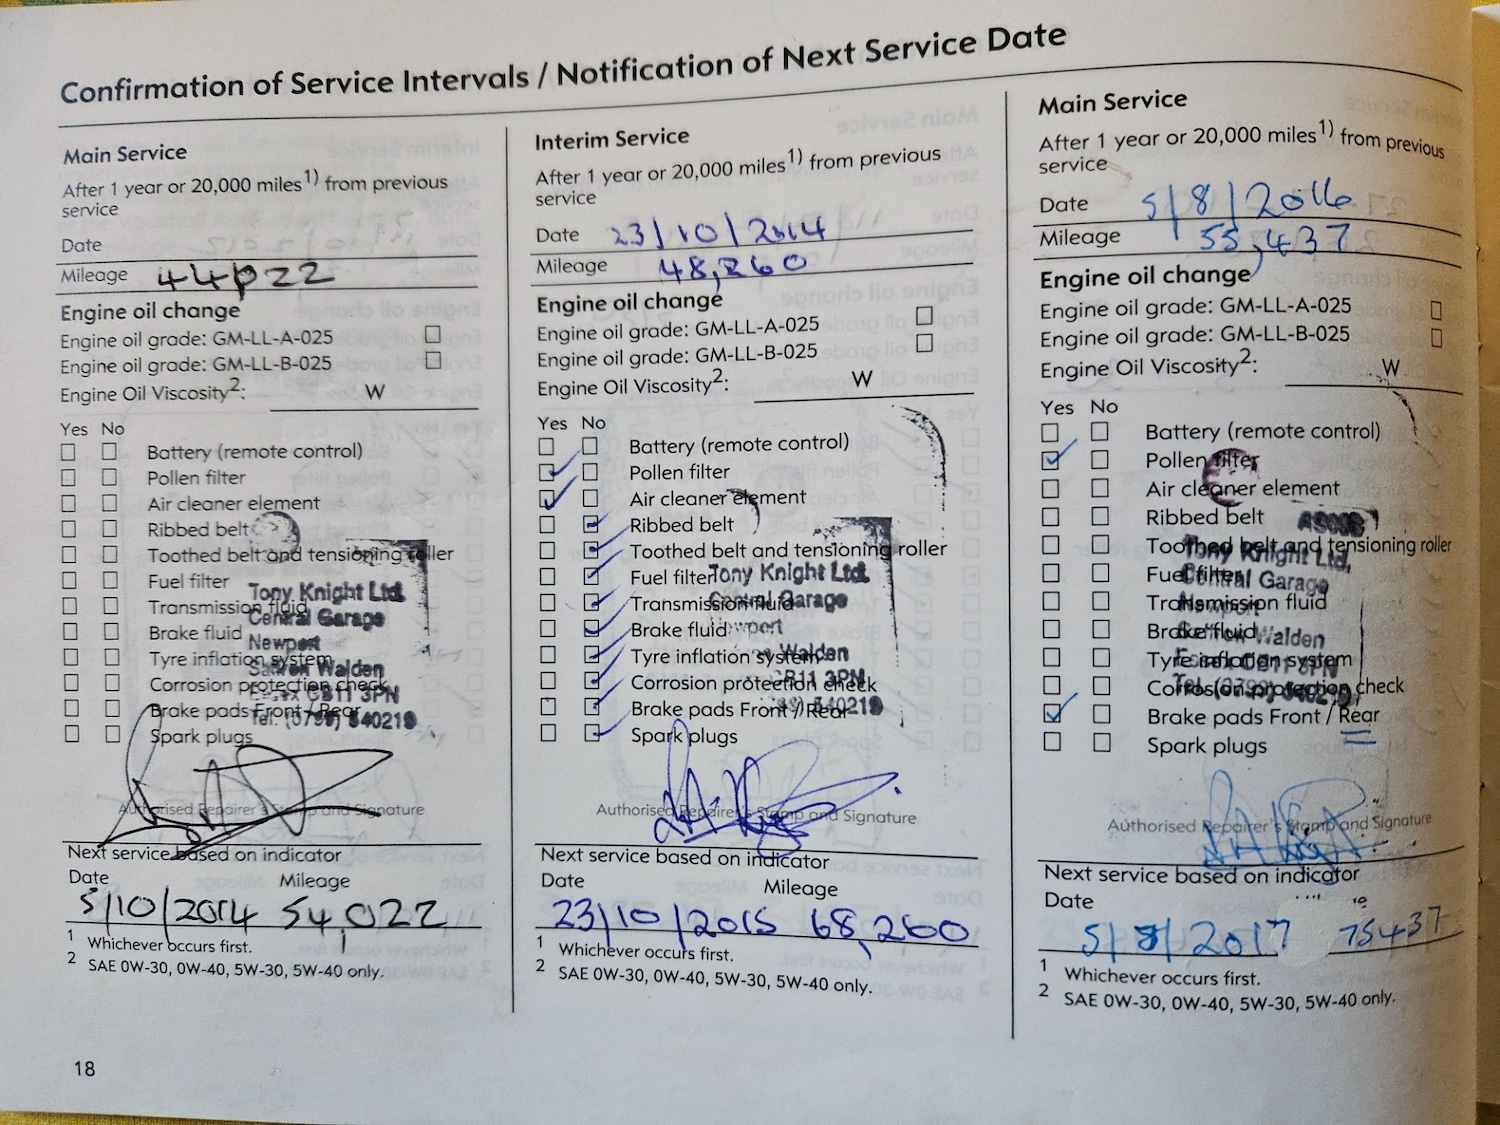 Confirmation of Service Intervals / Notification of Next Service Date
Main Service
After 1 year or 20,000 miles1) from previous
service
Date
Mileage 44022
Engine oil change
Engine oil grade: GM-LL-A-025
Engine oil grade: GM-LL-B-025
Engine Oil Viscosity2: W
Yes No
Battery (remote control)
Pollen filter
Air cleaner element
Ribbed belt
Toothed belt and tensioning roller
Fuel filter
Transmission fluid
Brake fluid
Tyre inflation system
Corrosion protection check
Brake pads Front / Rear
Spark plugs
Tony Knight Ltd.
Central Garage
Newport
Saffron Walden
Essex CB11 3PN
Tel: (0799) 540219
Authorised Repairer's Stamp and Signature
Next service based on indicator
Date Mileage
5/10/2014 54,022
1 Whichever occurs first.
2 SAE 0W-30, 0W-40, 5W-30, 5W-40 only.
18
Interim Service
After 1 year or 20,000 miles1) from previous
service
Date 23/10/2014
Mileage 48,260
Engine oil change
Engine oil grade: GM-LL-A-025
Engine oil grade: GM-LL-B-025
Engine Oil Viscosity2: W
Yes No
Battery (remote control)
Pollen filter
Air cleaner element
Ribbed belt
Toothed belt and tensioning roller
Fuel filter
Transmission fluid
Brake fluid
Tyre inflation system
Corrosion protection check
Brake pads Front / Rear
Spark plugs
Tony Knight Ltd.
Central Garage
Newport
Walden
CB11 3PN
540219
Authorised Repairer's Stamp and Signature
Next service based on indicator
Date Mileage
23/10/2015 68,260
1 Whichever occurs first.
2 SAE 0W-30, 0W-40, 5W-30, 5W-40 only.
Main Service
After 1 year or 20,000 miles1) from previous
service
Date 5/8/2016
Mileage 55,437
Engine oil change
Engine oil grade: GM-LL-A-025
Engine oil grade: GM-LL-B-025
Engine Oil Viscosity2: W
Yes No
Battery (remote control)
Pollen filter
Air cleaner element
Ribbed belt
Toothed belt and tensioning roller
Fuel filter
Transmission fluid
Brake fluid
Tyre inflation system
Corrosion protection check
Brake pads Front / Rear
Spark plugs
Tony Knight Ltd,
Central Garage
Newport
Saffron Walden
Essex CB11 3PN
Authorised Repairer's Stamp and Signature
Next service based on indicator
Date
5/8/2017 75437
1 Whichever occurs first.
2 SAE 0W-30, 0W-40, 5W-30, 5W-40 only.